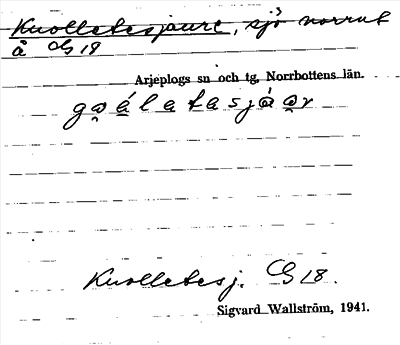 Kuolletesjaure, sjö norrut
å CG 18
Arjeplogs sn och tg, Norrbottens län.
go̭á̱la̱ta̱sjáa̭r
Kuolletesj. CG 18.
Sigvard Wallström, 1941.